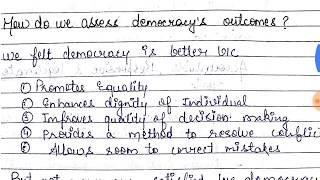 How do we assess democracy's outcomes?
we felt democracy is better b/c
① Promotes Equality
② Enhances dignity of individual
③ Improves quality of decision making
④ Provides a method to resolve conflic
⑤ Allows room to correct mistakes
But not